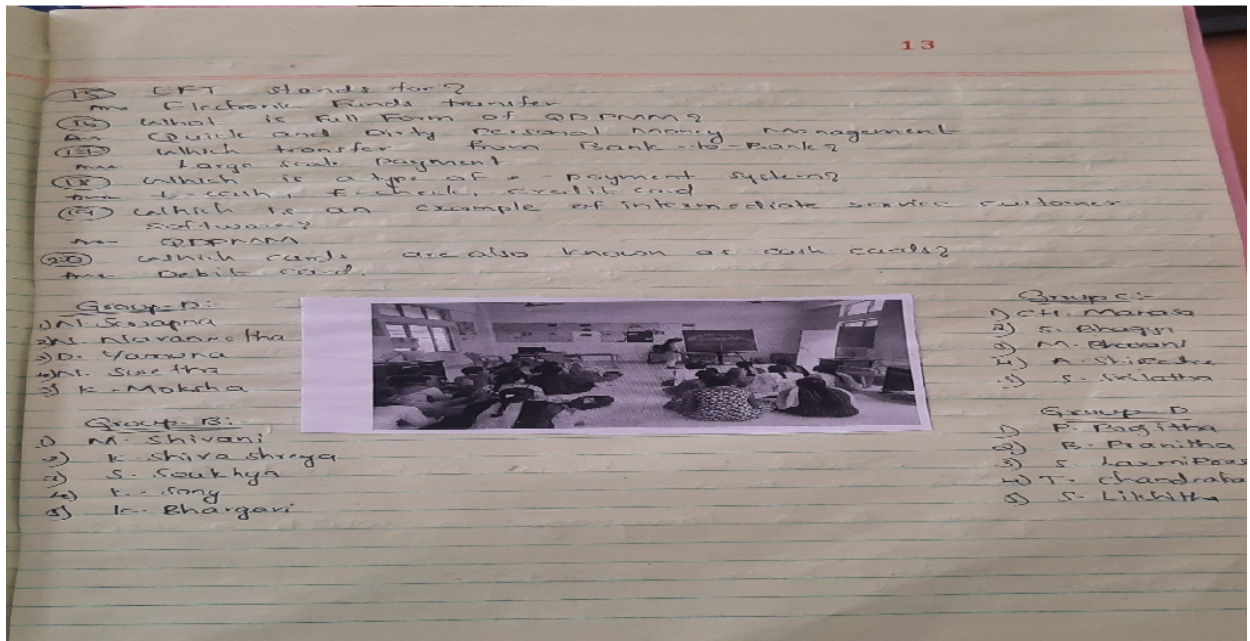 13
(15) EFT stands for?
Ans Electronic Funds transfer
(16) What is Full Form of QDPMM?
Ans Quick and Dirty Personal Money Management
(17) Which transfer from Bank-to-Bank?
Ans Large scale payment
(18) Which is a type of e-payment system?
Ans E-cash, E-check, credit card
(19) Which is an example of intermediate service customer
software?
Ans QDPMM
(20) Which cards are also known as cash cards?
Ans Debit card.
Group-A:-
1) N.
2) N.
3) D. Yamuna
4) N. Swetha
5) K. Moksha
Group-B:
1) M. Shivani
2) K. Shiva shreya
3) S. Soukhya
4) K. Sony
5) K. Bhargavi
Group C:-
1) CH. Manasa
2) S. Bhagya
3) M. Bhavani
4) A.
5) S. Srilatha
Group D
1) P.
2) B. Pranitha
3) S.
4) T.
5) S. Likhitha